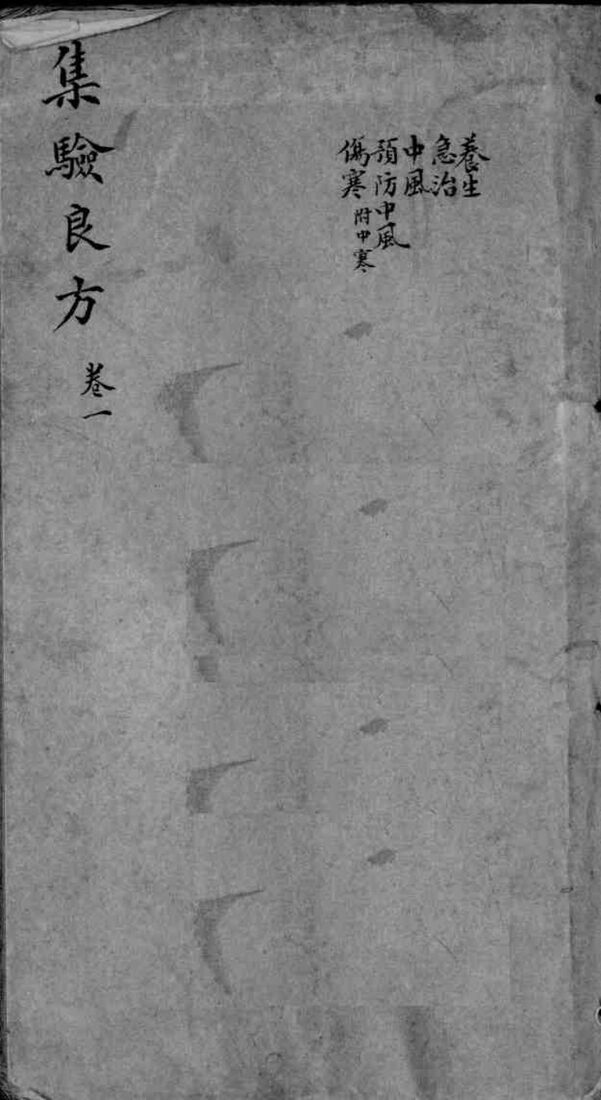 養生
急治
中風
預防中風
傷寒 附中寒
集驗良方 卷一